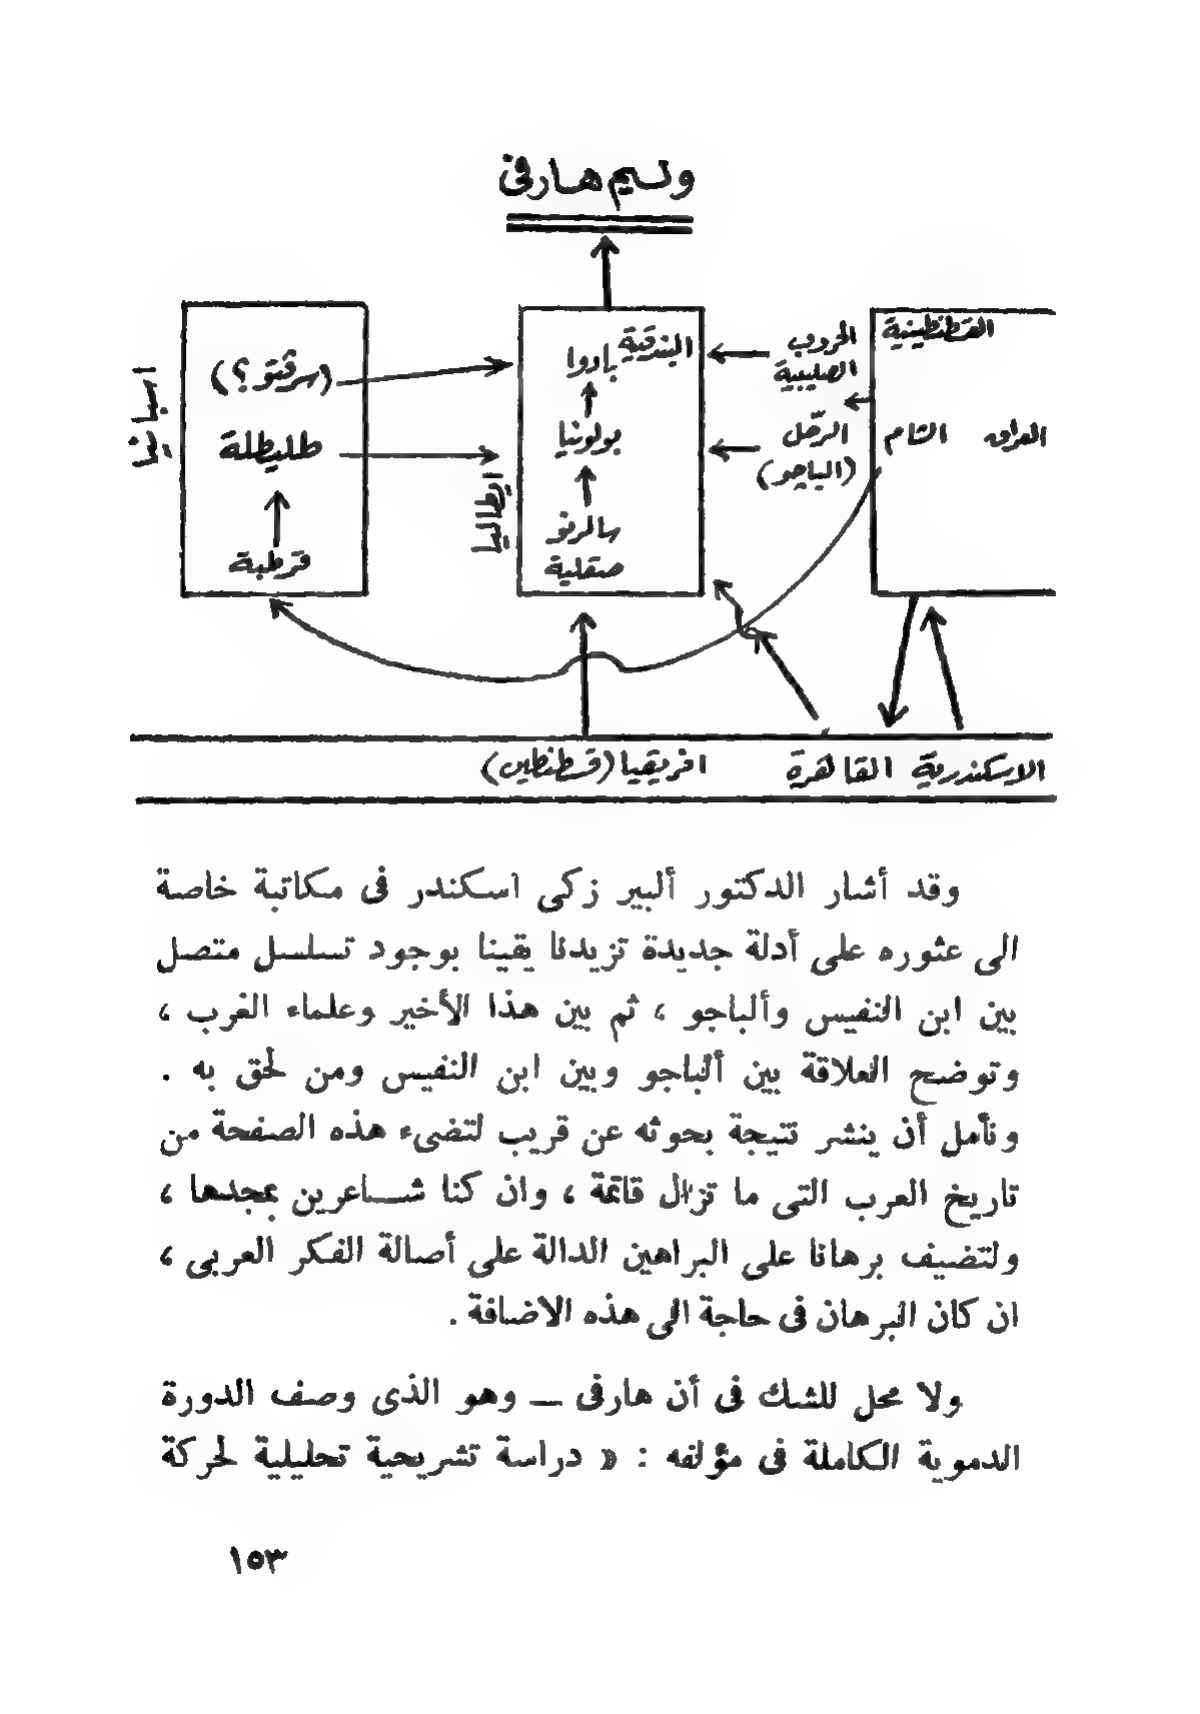 وليم هارفى
القسطنطينية
العراق الشام
الحروب
الصليبية
الرحّل
(الباجو)
البندقية
بادوا
بولونيا
سالرنو
صقلية
ايطاليا
(سرڤتو؟)
طليطلة
قرطبة
اسبانيا
الاسكندرية القاهرة افريقيا (قسطنطين)
وقد أشار الدكتور ألبير زكى اسكندر فى مكاتبة خاصة
الى عثوره على أدلة جديدة تزيدنا يقينا بوجود تسلسل متصل
بين ابن النفيس وألباجو ، ثم بين هذا الأخير وعلماء الغرب ،
وتوضح العلاقة بين ألباجو وبين ابن النفيس ومن لحق به .
ونأمل أن ينشر نتيجة بحوثه عن قريب لتضىء هذه الصفحة من
تاريخ العرب التى ما تزال قاتمة ، وان كنا شــاعرين بمجدها ،
ولتضيف برهانا على البراهين الدالة على أصالة الفكر العربى ،
ان كان البرهان فى حاجة الى هذه الاضافة .
ولا محل للشك فى أن هارفى — وهو الذى وصف الدورة
الدموية الكاملة فى مؤلفه : « دراسة تشريحية تحليلية لحركة
١٥٣